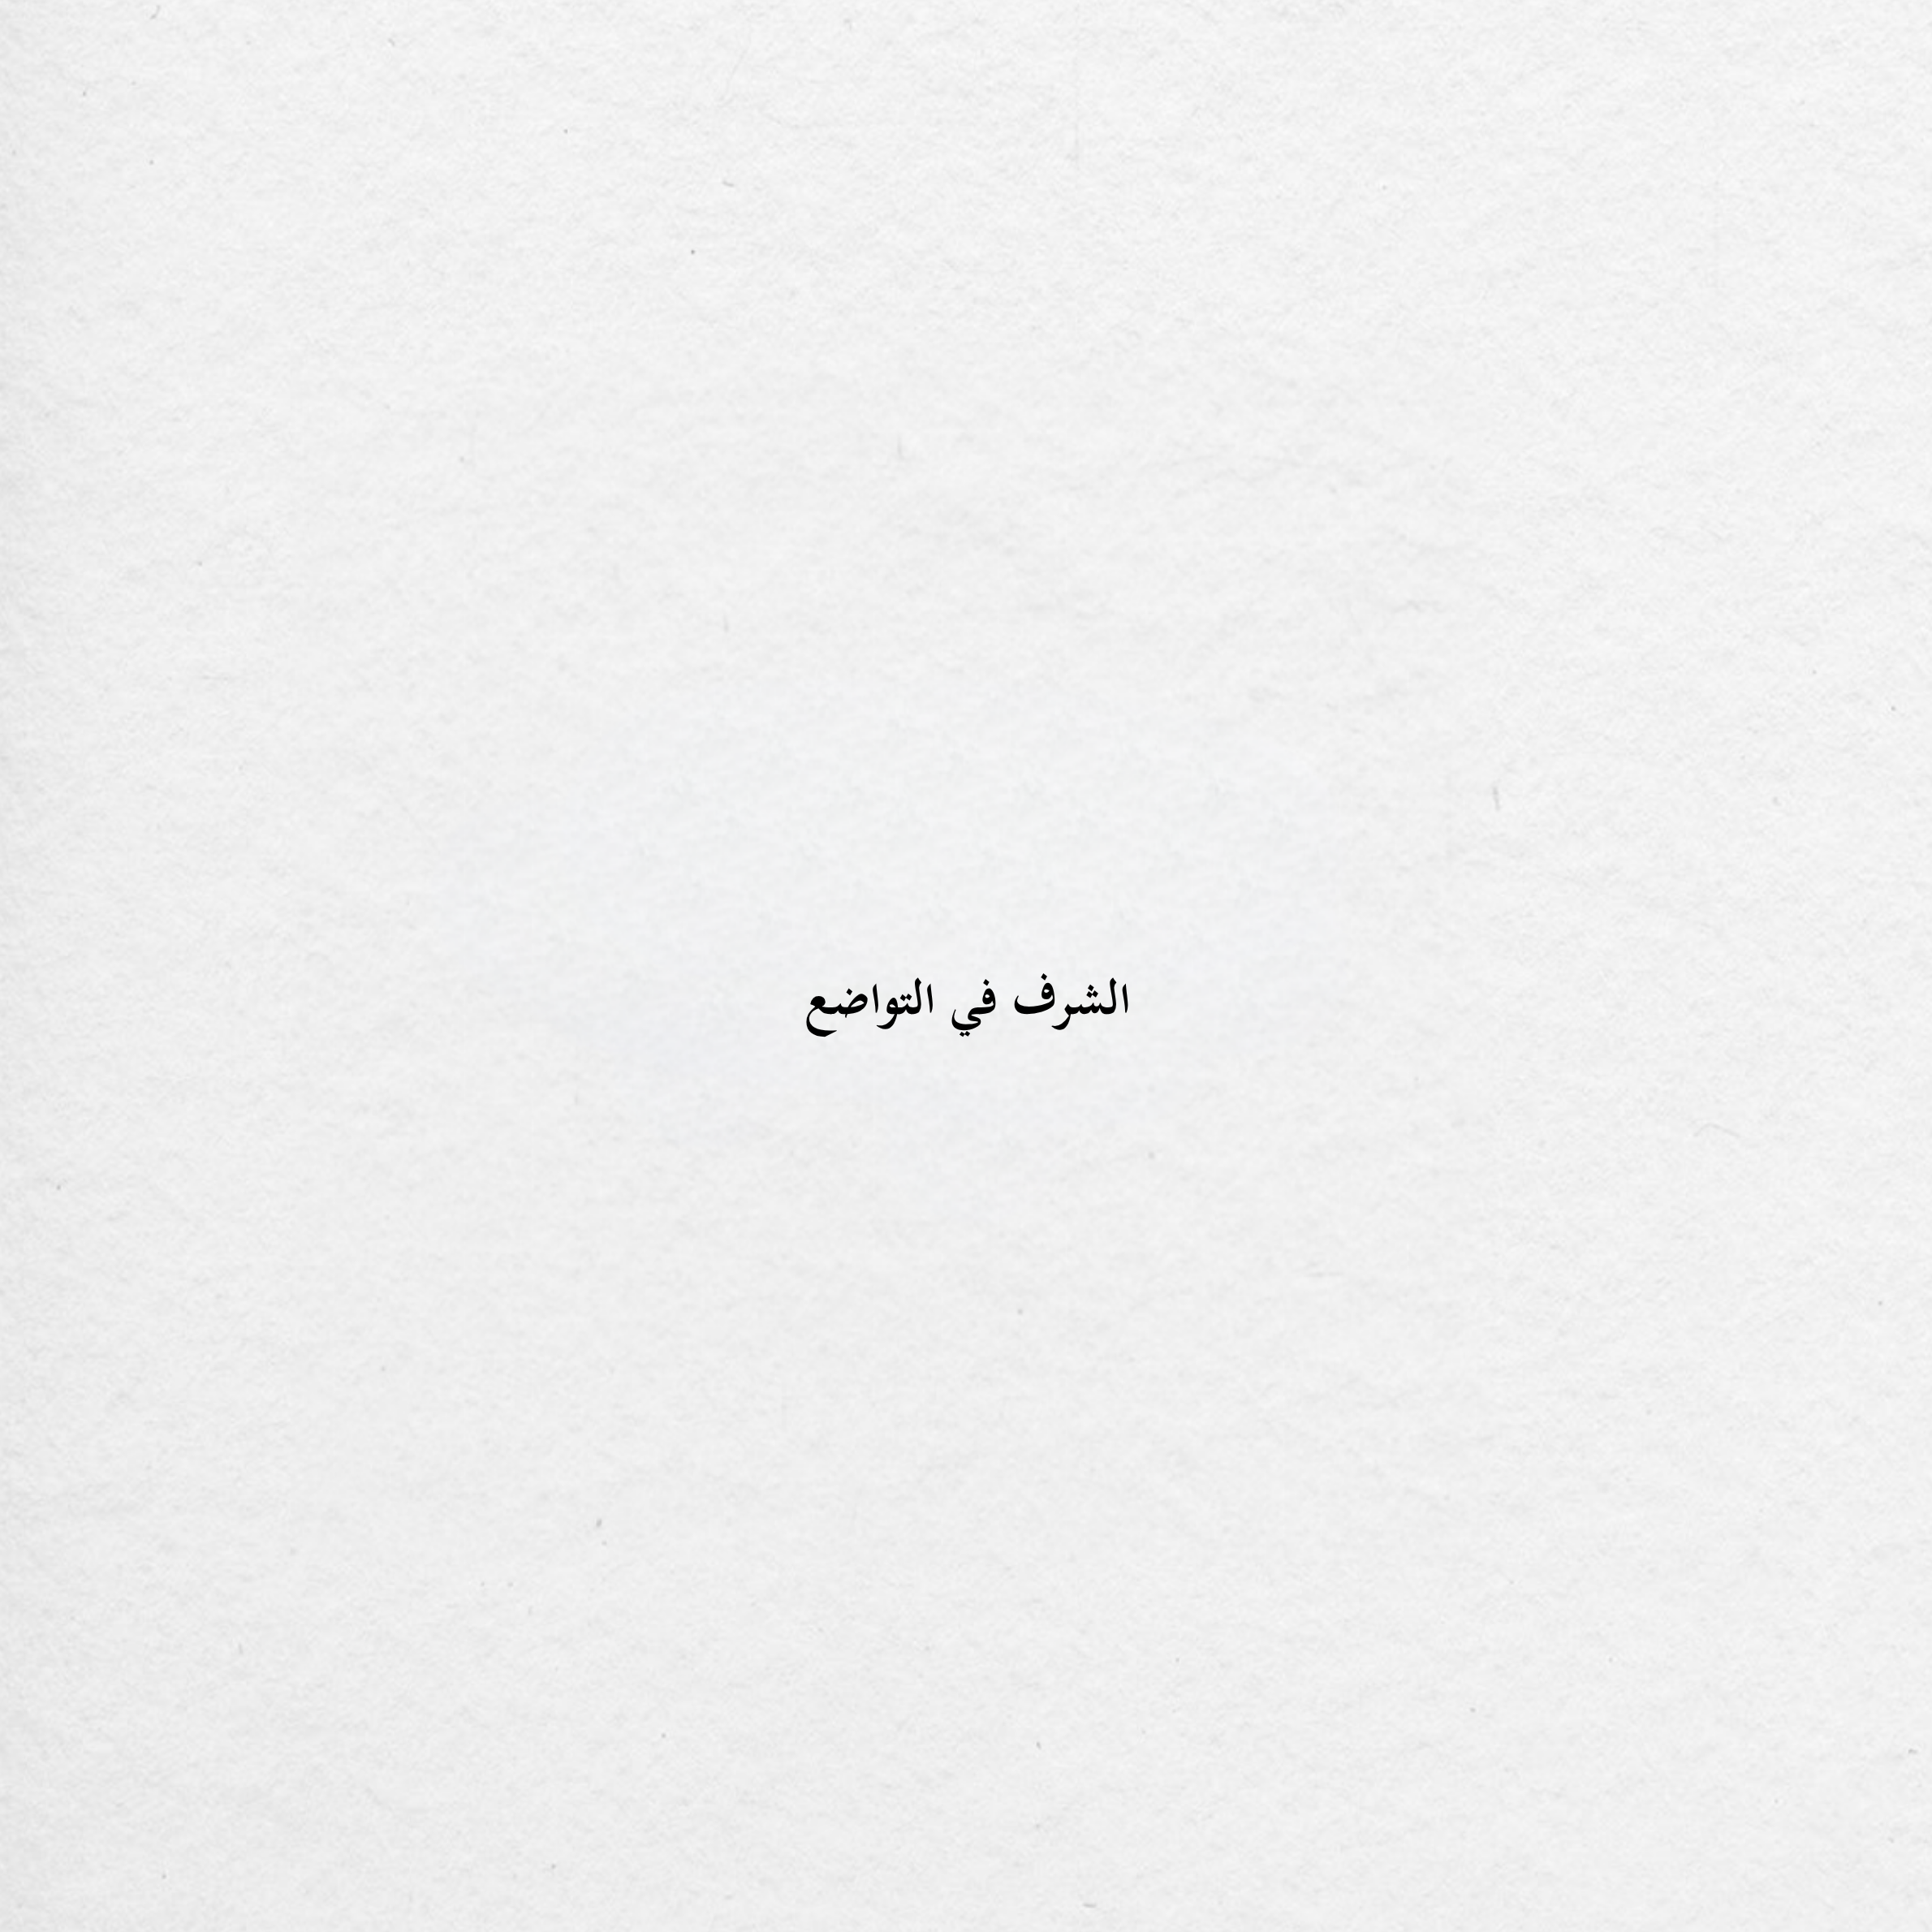 الشرف في التواضع